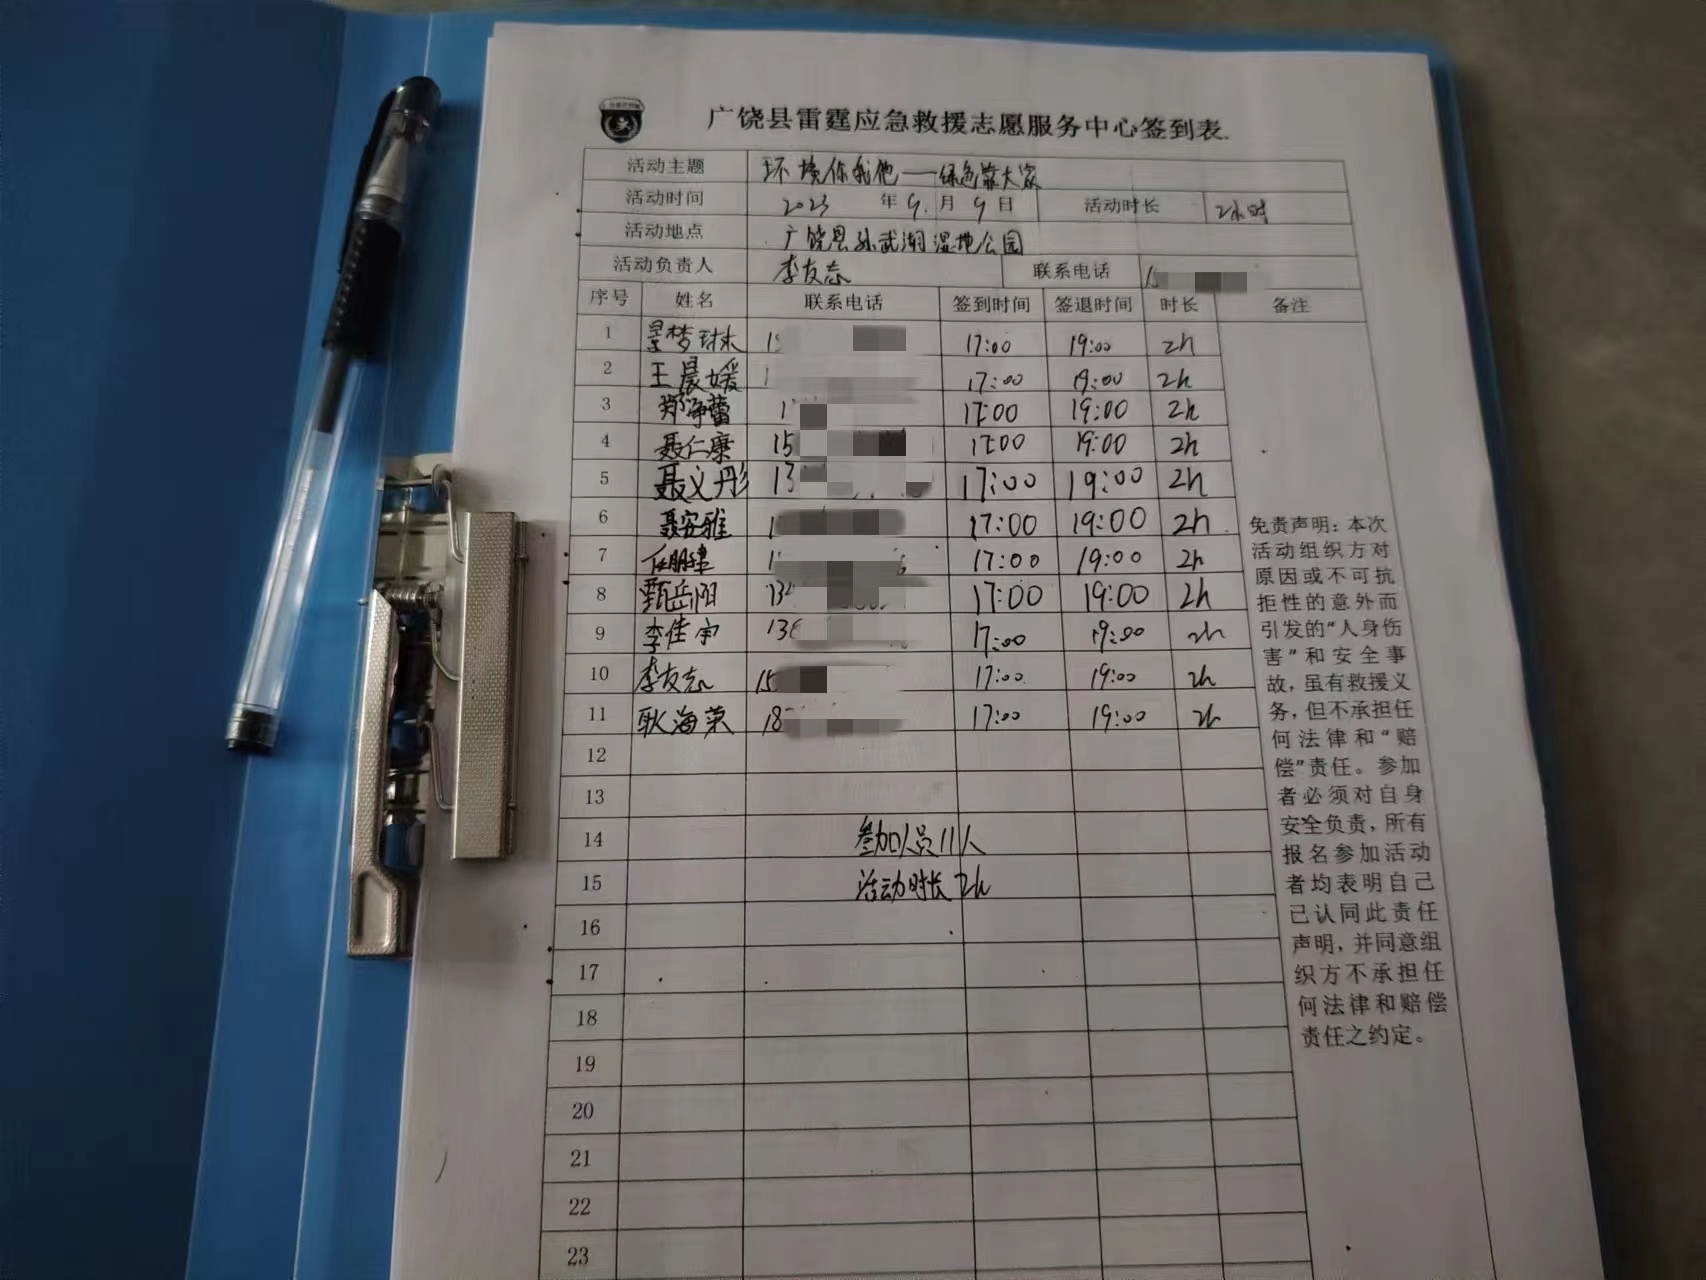 广饶县雷霆应急救援志愿服务中心签到表.
活动主题 环境你我他——绿色靠大家
活动时间 2023 年 9. 月 9 日 活动时长 2小时
活动地点 广饶县孙武湖湿地公园
活动负责人 李友志 联系电话 1
序号 姓名 联系电话 签到时间 签退时间 时长 备注
1 景梦琳 15 17:00 19:00 2h
2 王晨媛 1 17:00 19:00 2h
3 郑净蕾 1 17:00 19:00 2h
4 聂仁康 15 17:00 19:00 2h
5 聂义彤 13 17:00 19:00 2h
6 聂安雅 1 17:00 19:00 2h
7 任鹏 1 17:00 19:00 2h
8 甄岳阳 13 17:00 19:00 2h
9 李佳宇 138 17:00 19:00 2h
10 李友志 15 17:00 19:00 2h
11 耿海荣 18 17:00 19:00 2h
12
13
14 参加人员11人
15 活动时长2h
16
17
18
19
20
21
22
23
免责声明：本次
活动组织方对
原因或不可抗
拒性的意外而
引发的“人身伤
害”和安全事
故，虽有救援义
务，但不承担任
何法律和“赔
偿”责任。参加
者必须对自身
安全负责，所有
报名参加活动
者均表明自己
已认同此责任
声明，并同意组
织方不承担任
何法律和赔偿
责任之约定。